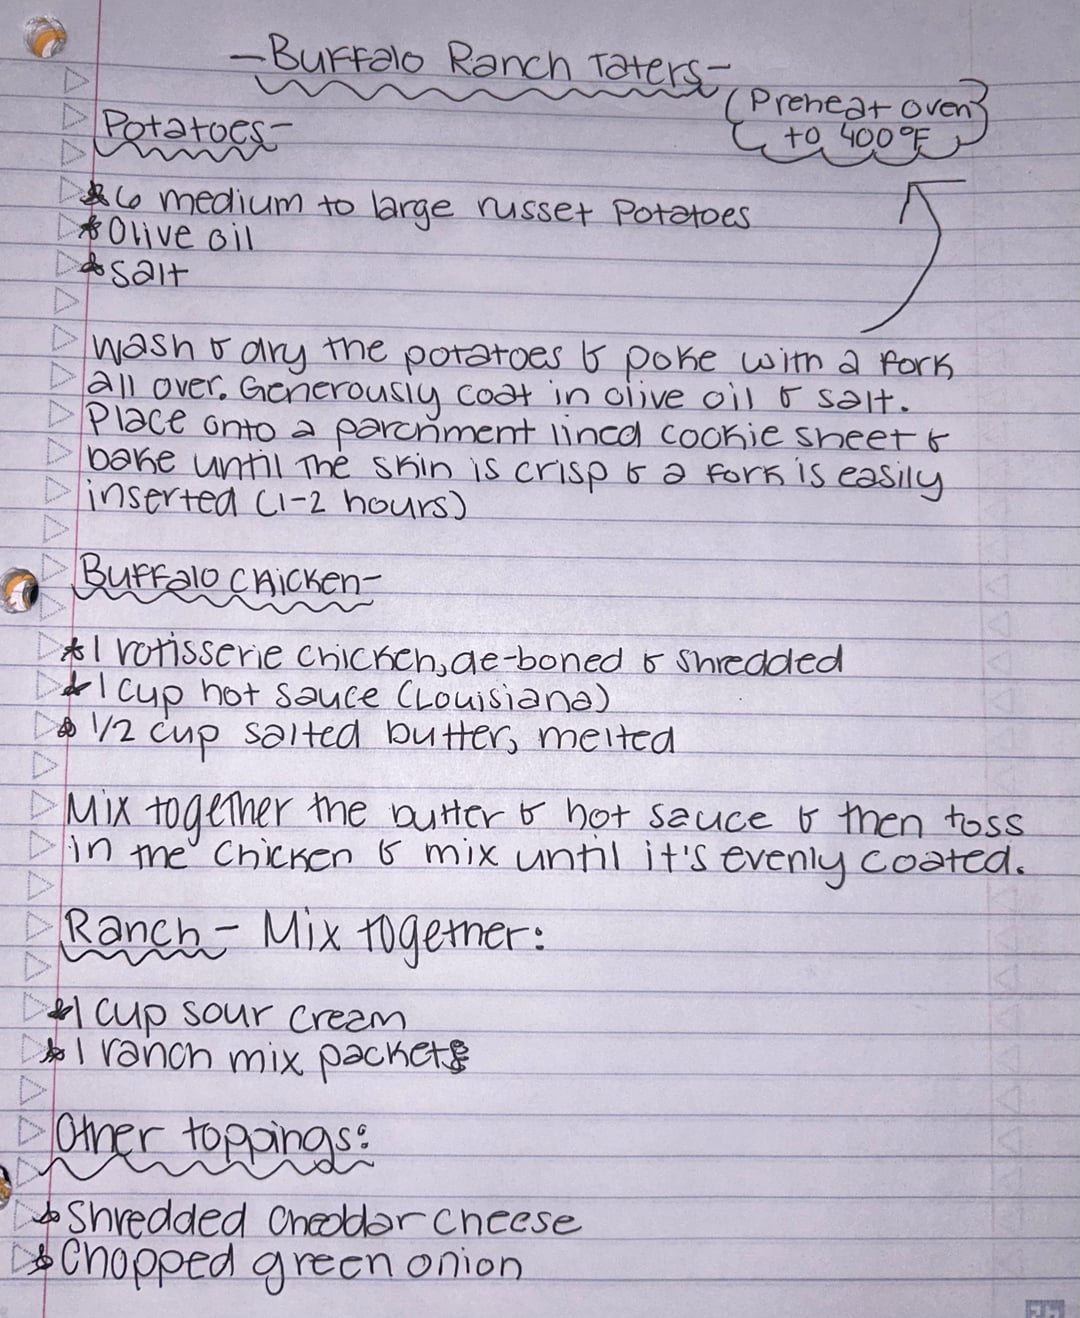 -Buffalo Ranch Taters-
(Preheat oven
to 400°F
Potatoes-
*6 medium to large russet potatoes
*Olive oil
*salt
Wash & dry the potatoes & poke with a fork
all over. Generously coat in olive oil & salt.
Place onto a parchment lined cookie sheet &
bake until the skin is crisp & a fork is easily
inserted (1-2 hours)
Buffalo Chicken-
*1 rotisserie chicken, de-boned & shredded
*1 cup hot sauce (Louisiana)
*1/2 cup salted butter, melted
Mix together the butter & hot sauce & then toss
in the chicken & mix until it's evenly coated.
Ranch- Mix together:
*1 cup sour cream
*1 ranch mix packet
Other toppings:
*Shredded Cheddar cheese
*Chopped green onion